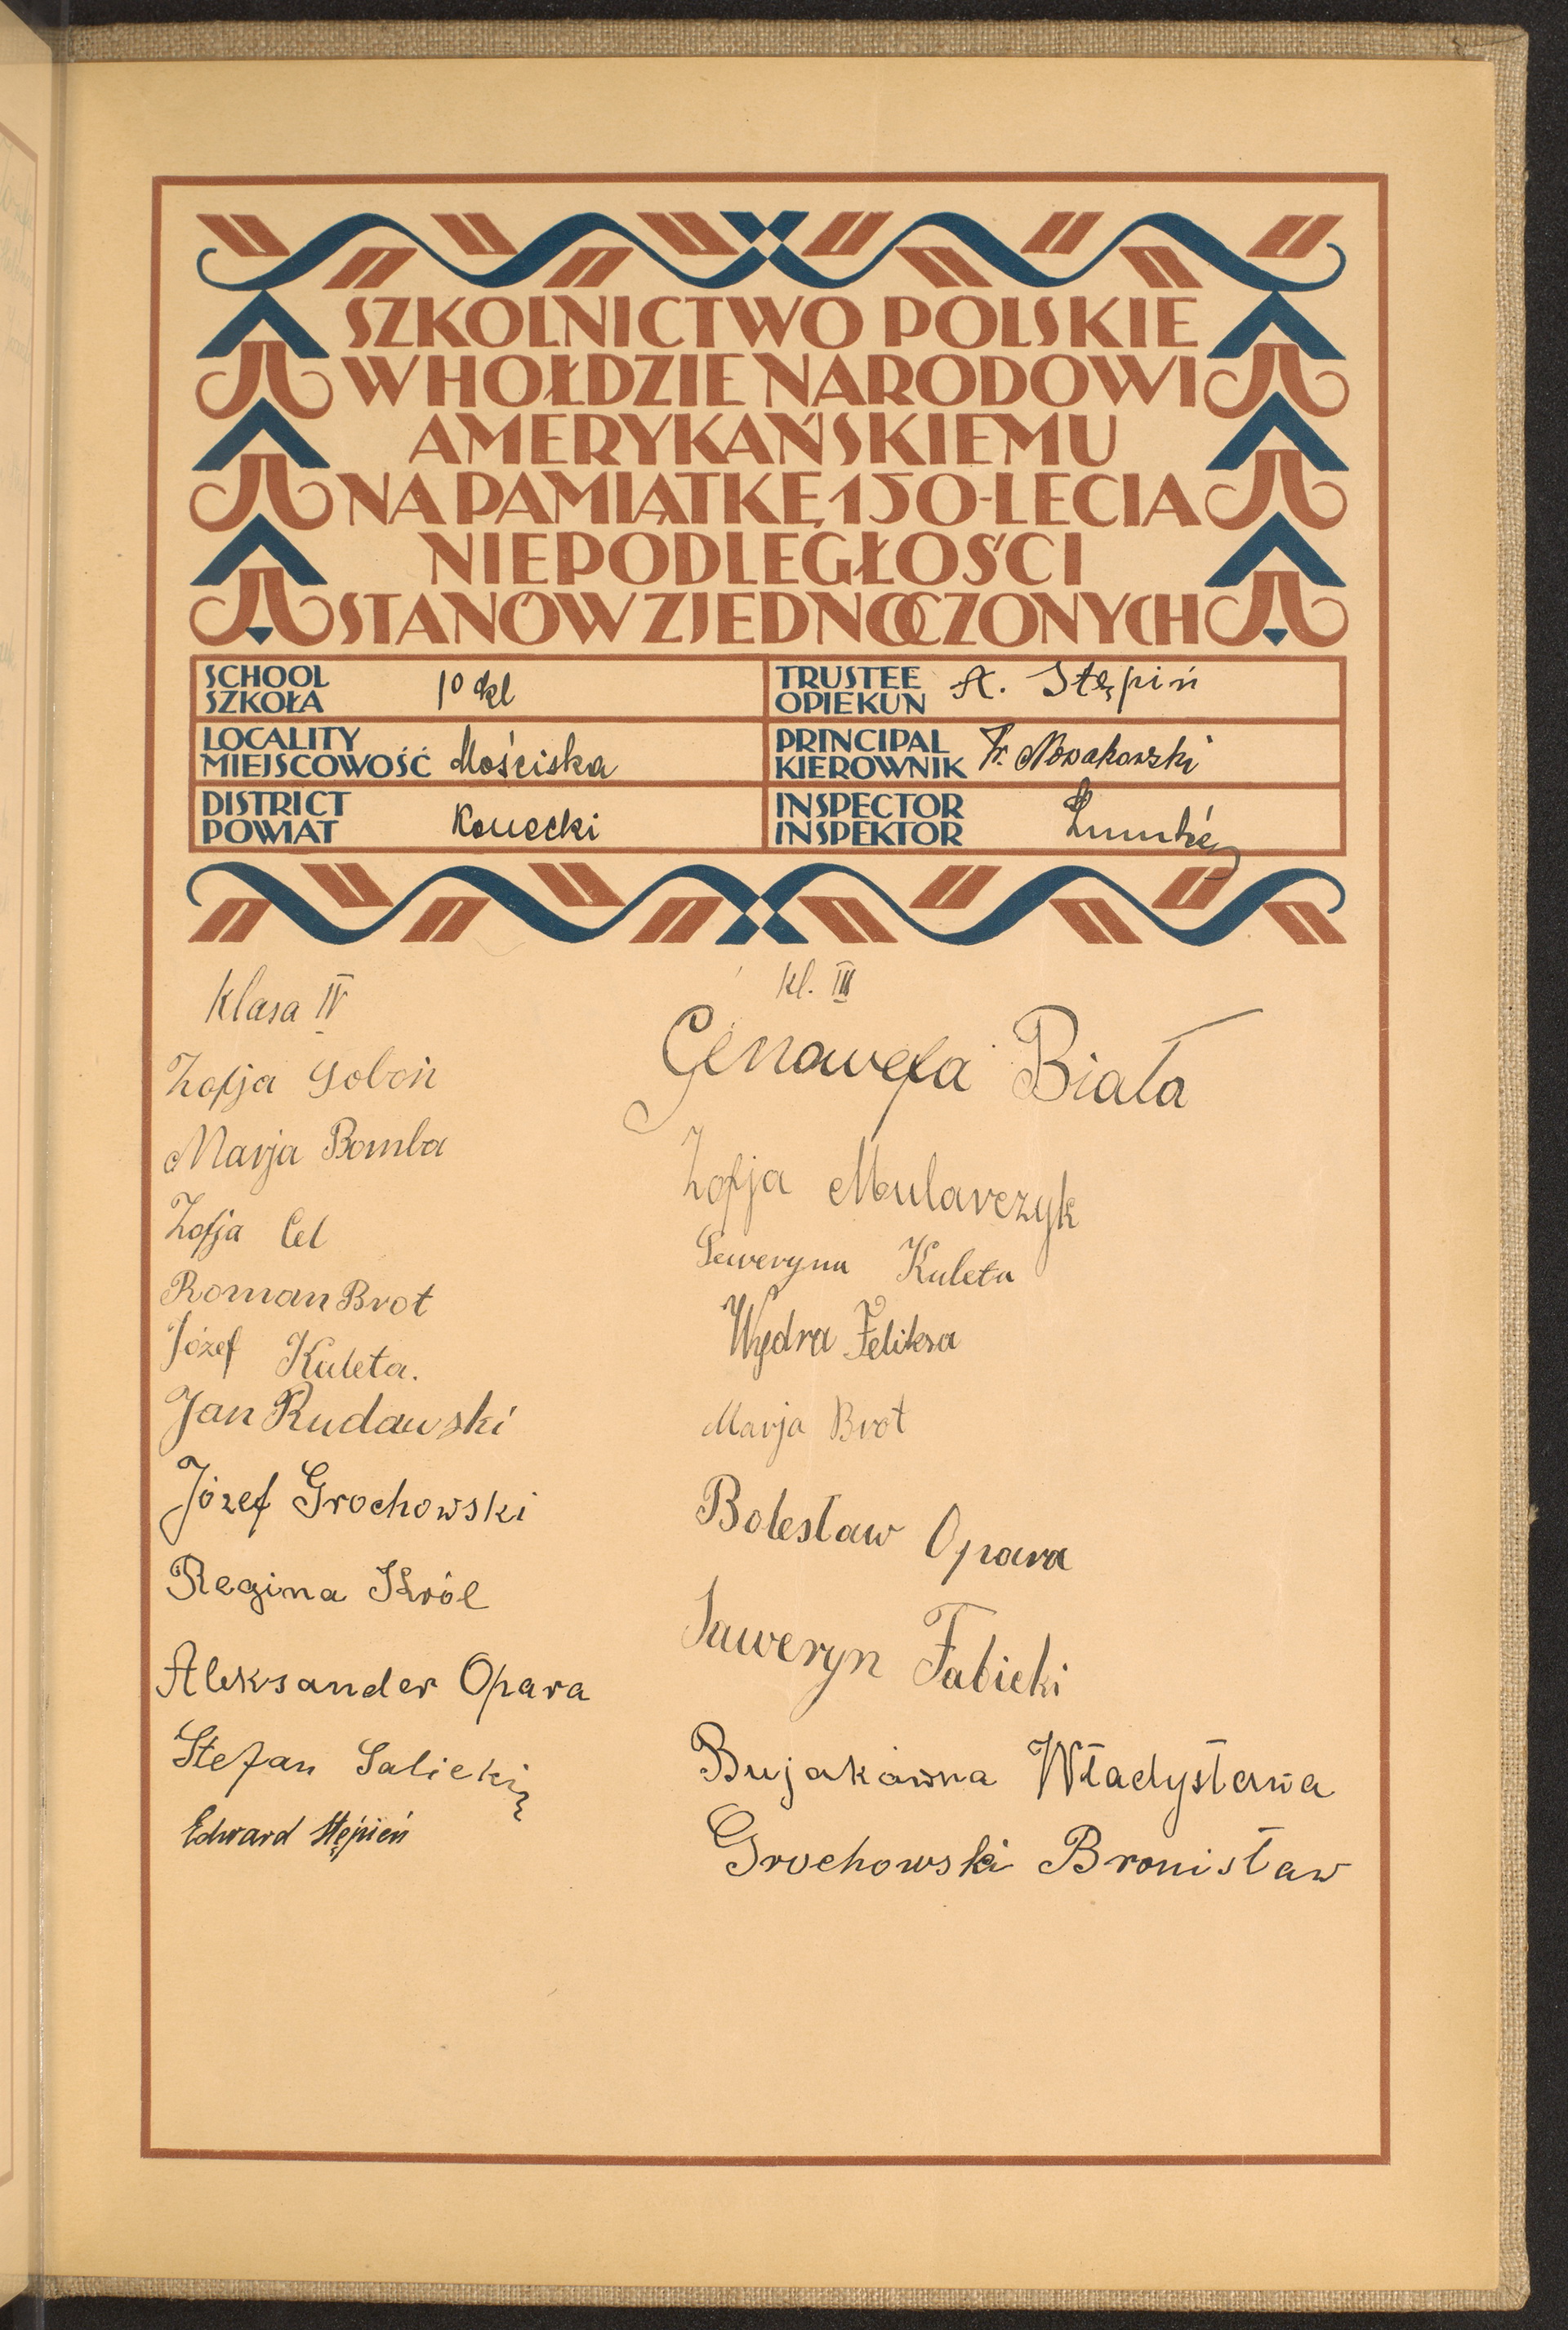 SZKOLNICTWO POLSKIE
W HOŁDZIE NARODOWI
AMERYKAŃSKIEMU
NA PAMIĄTKĘ 150-LECIA
NIEPODLEGŁOŚCI
STANÓW ZJEDNOCZONYCH
SCHOOL
SZKOŁA
10 kl
TRUSTEE
OPIEKUN
A. Stępiń
LOCALITY
MIEJSCOWOŚĆ
Mościska
PRINCIPAL
KIEROWNIK
Nowakowski
DISTRICT
POWIAT
Konecki
INSPECTOR
INSPEKTOR
Klasa IV
Zofja Soboń
Marja Bomba
Zofja Cel
Roman Brot
Józef Kuleta.
Jan Rudawski
Józef Grochowski
Regina Król
Aleksander Opara
Stefan Salicki
Edward Stępień
kl. III
Genowefa Biała
Zofja Mularczyk
Seweryna Kuleta
Wydra Feliksa
Marja Brot
Bolesław Opara
Saweryn Fabicki
Bujakówna Władysława
Grochowski Bronisław